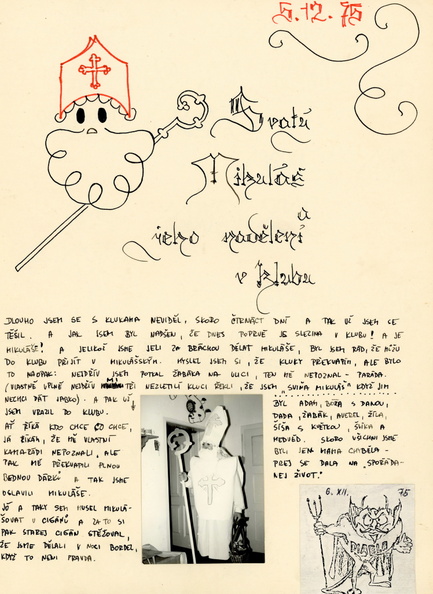 5.12.75
Svatý
Mikuláš
a
jeho nadělení
v klubu
DLOUHO JSEM SE S KLUKAMA NEVIDĚL, SKORO ČTRNÁCT DNÍ A TAK UŽ JSEM SE
TĚŠIL. A JAK JSEM BYL NADŠEN, ŽE DNES POPRVÉ JE SLEZINA V KLUBU! A JE
MIKULÁŠE! A JELIKOŽ JSME JELI ZA BRÁCHOU DĚLAT MIKULÁŠE, BYL JSEM RÁD, ŽE MŮŽU
DO KLUBU PŘIJÍT V MIKULÁŠSKÝM. MYSLEL JSEM SI, ŽE KLUKY PŘEKVAPÍM, ALE BYLO
TO NAOPAK. NEJDŘÍV JSEM POTKAL ŽABÁKA NA ULICI, TEN MĚ NEPOZNAL - PARÁDA.
(VLASTNĚ ÚPLNĚ NEJDŘÍV MI TŘI NEZLETILÍ KLUCI ŘEKLI, ŽE JSEM „SVIŇA MIKULÁŠ" KDYŽ JIM
NECHCI DÁT JABKO) - A PAK UŽ
JSEM VRAZIL DO KLUBU.
AŤ ŘÍKÁ KDO CHCE CO CHCE,
JÁ ŘÍKÁM, ŽE MĚ VLASTNÍ
KAMARÁDI NEPOZNALI, ALE
TAK MĚ PŘEKVAPILI PLNOU
BEDNOU DÁRKŮ A TAK JSME
OSLAVILI MIKULÁŠE.
JÓ A TAKY SEM MUSEL MIKULÁ-
ŠOVAT U CIGÁNŮ A ZA TO SI
PAK STAREJ CIGÁN STĚŽOVAL,
ŽE JSME DĚLALI V NOCI BORDEL,
KDYŽ TO NENÍ PRAVDA.
BYL ADAM, BOŽA S DANOU,
DADA, ŽABÁK, AVEREL, ŽÍLA,
ŠÍŠA S KAŤKOU, ŠUKA A
MEDVĚD. SKORO VŠICHNI JSME
BYLI JEN MAMA
PREJ SE DALA NA „SPOŘÁDA-
NEJ ŽIVOT."
6. XII. 75